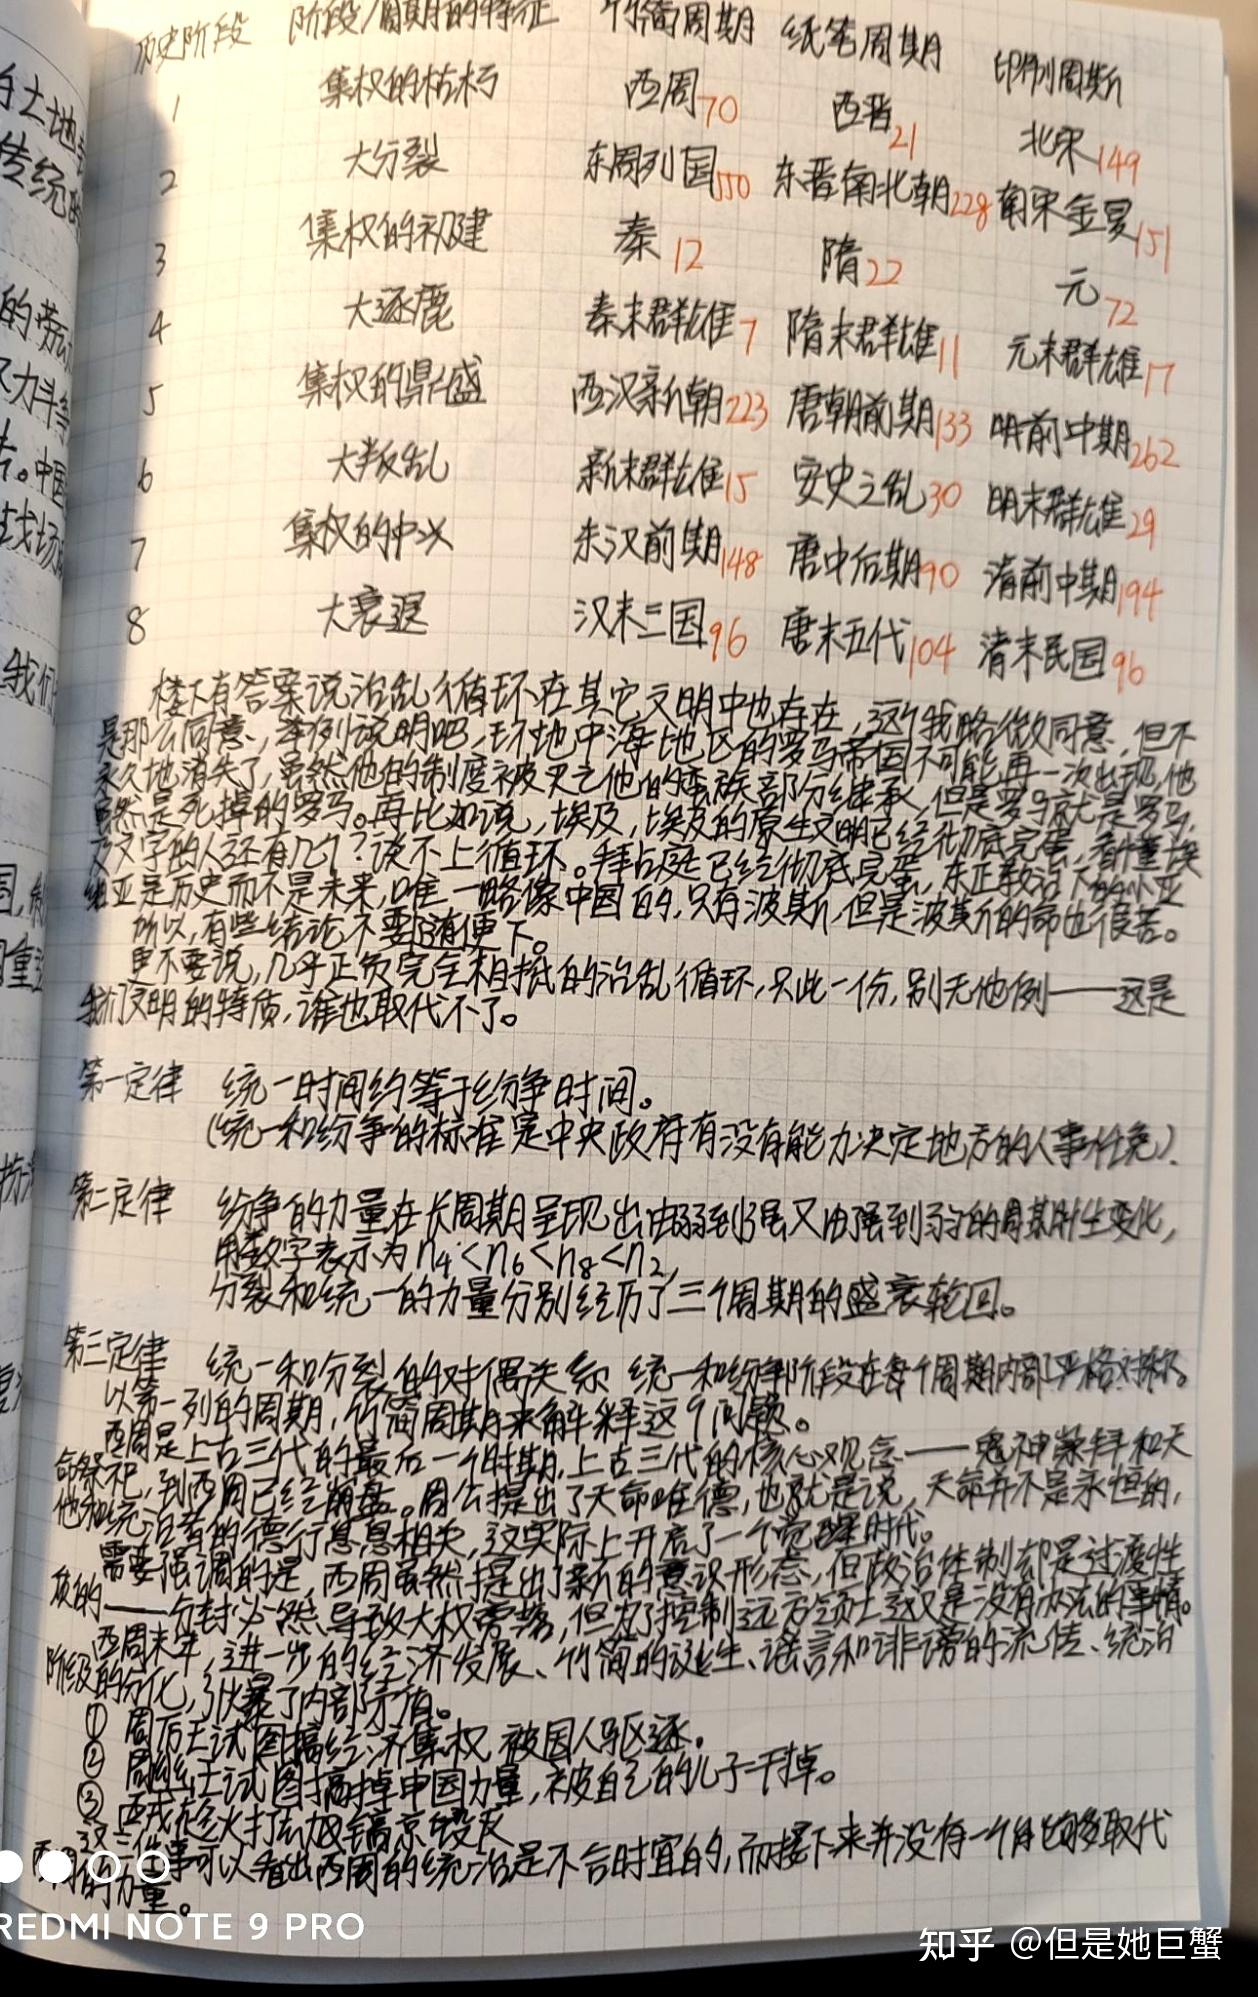 历史阶段 阶段/周期的特征 竹简周期 纸笔周期 印刷周期
1 集权的枯朽 西周70 西晋21 北宋149
2 大分裂 东周列国550 东晋南北朝228 南宋金夏151
3 集权的初建 秦12 隋22 元72
4 大逐鹿 秦末群雄7 隋末群雄11 元末群雄17
5 集权的鼎盛 西汉新朝223 唐朝前期133 明前中期262
6 大叛乱 新末群雄15 安史之乱30 明末群雄29
7 集权的中兴 东汉前期148 唐中后期90 清前中期194
8 大衰退 汉末三国96 唐末五代104 清末民国96
楼下有答案说治乱循环在其它文明中也存在，这个我略微同意，但不
是那么同意，举例说明吧，环地中海地区的罗马帝国不可能再一次出现，他
永久地消失了，虽然他的制度被灭亡他的蛮族部分继承，但是罗马就是罗马，
虽然是死掉的罗马。再比如说，埃及，埃及的原生文明已经彻底完蛋，看懂埃
及文字的人还有几个？谈不上循环。拜占庭已经彻底完蛋，东正教治下的小亚
细亚是历史而不是未来，唯一略像中国的，只有波斯，但是波斯的命也很苦。
所以，有些结论不要随便下。
更不要说，几乎正负完全相抵的治乱循环，只此一份，别无他例——这是
我们文明的特质，谁也取代不了。
第一定律 统一时间约等于纷争时间。
（统一和纷争的标准是中央政府有没有能力决定地方的人事任免）.
第二定律 纷争的力量在长周期呈现出由弱到强又由强到弱的周期性变化，
用数字表示为n4<n6<n8<n2，
分裂和统一的力量分别经历了三个周期的盛衰轮回。
第三定律 统一和分裂的对偶关系 统一和纷争阶段在每个周期内部严格对称。
以第一列的周期，竹简周期来解释这个问题。
西周是上古三代的最后一个时期，上古三代的核心观念——鬼神崇拜和天
命祭祀，到西周已经崩盘。周公提出了天命唯德，也就是说，天命并不是永恒的，
他和统治者的德行息息相关，这实际上开启了一个觉醒时代。
需要强调的是，西周虽然提出了新的意识形态，但政治体制却是过渡性
质的——分封必然导致大权旁落，但为了控制远方领土这又是没有办法的事情。
西周末年，进一步的经济发展、竹简的诞生、谣言和诽谤的流传、统治
阶级的分化，引爆了内部矛盾。
① 周厉王试图搞经济集权，被国人驱逐.
② 周幽王试图搞掉申国力量，被自己的儿子干掉。
③ 西戎趁火打劫，镐京毁灭
这三件事可以看出西周的统治是不合时宜的，而接下来并没有一个能够取代
西周的力量。
REDMI NOTE 9 PRO
知乎 @但是她巨蟹